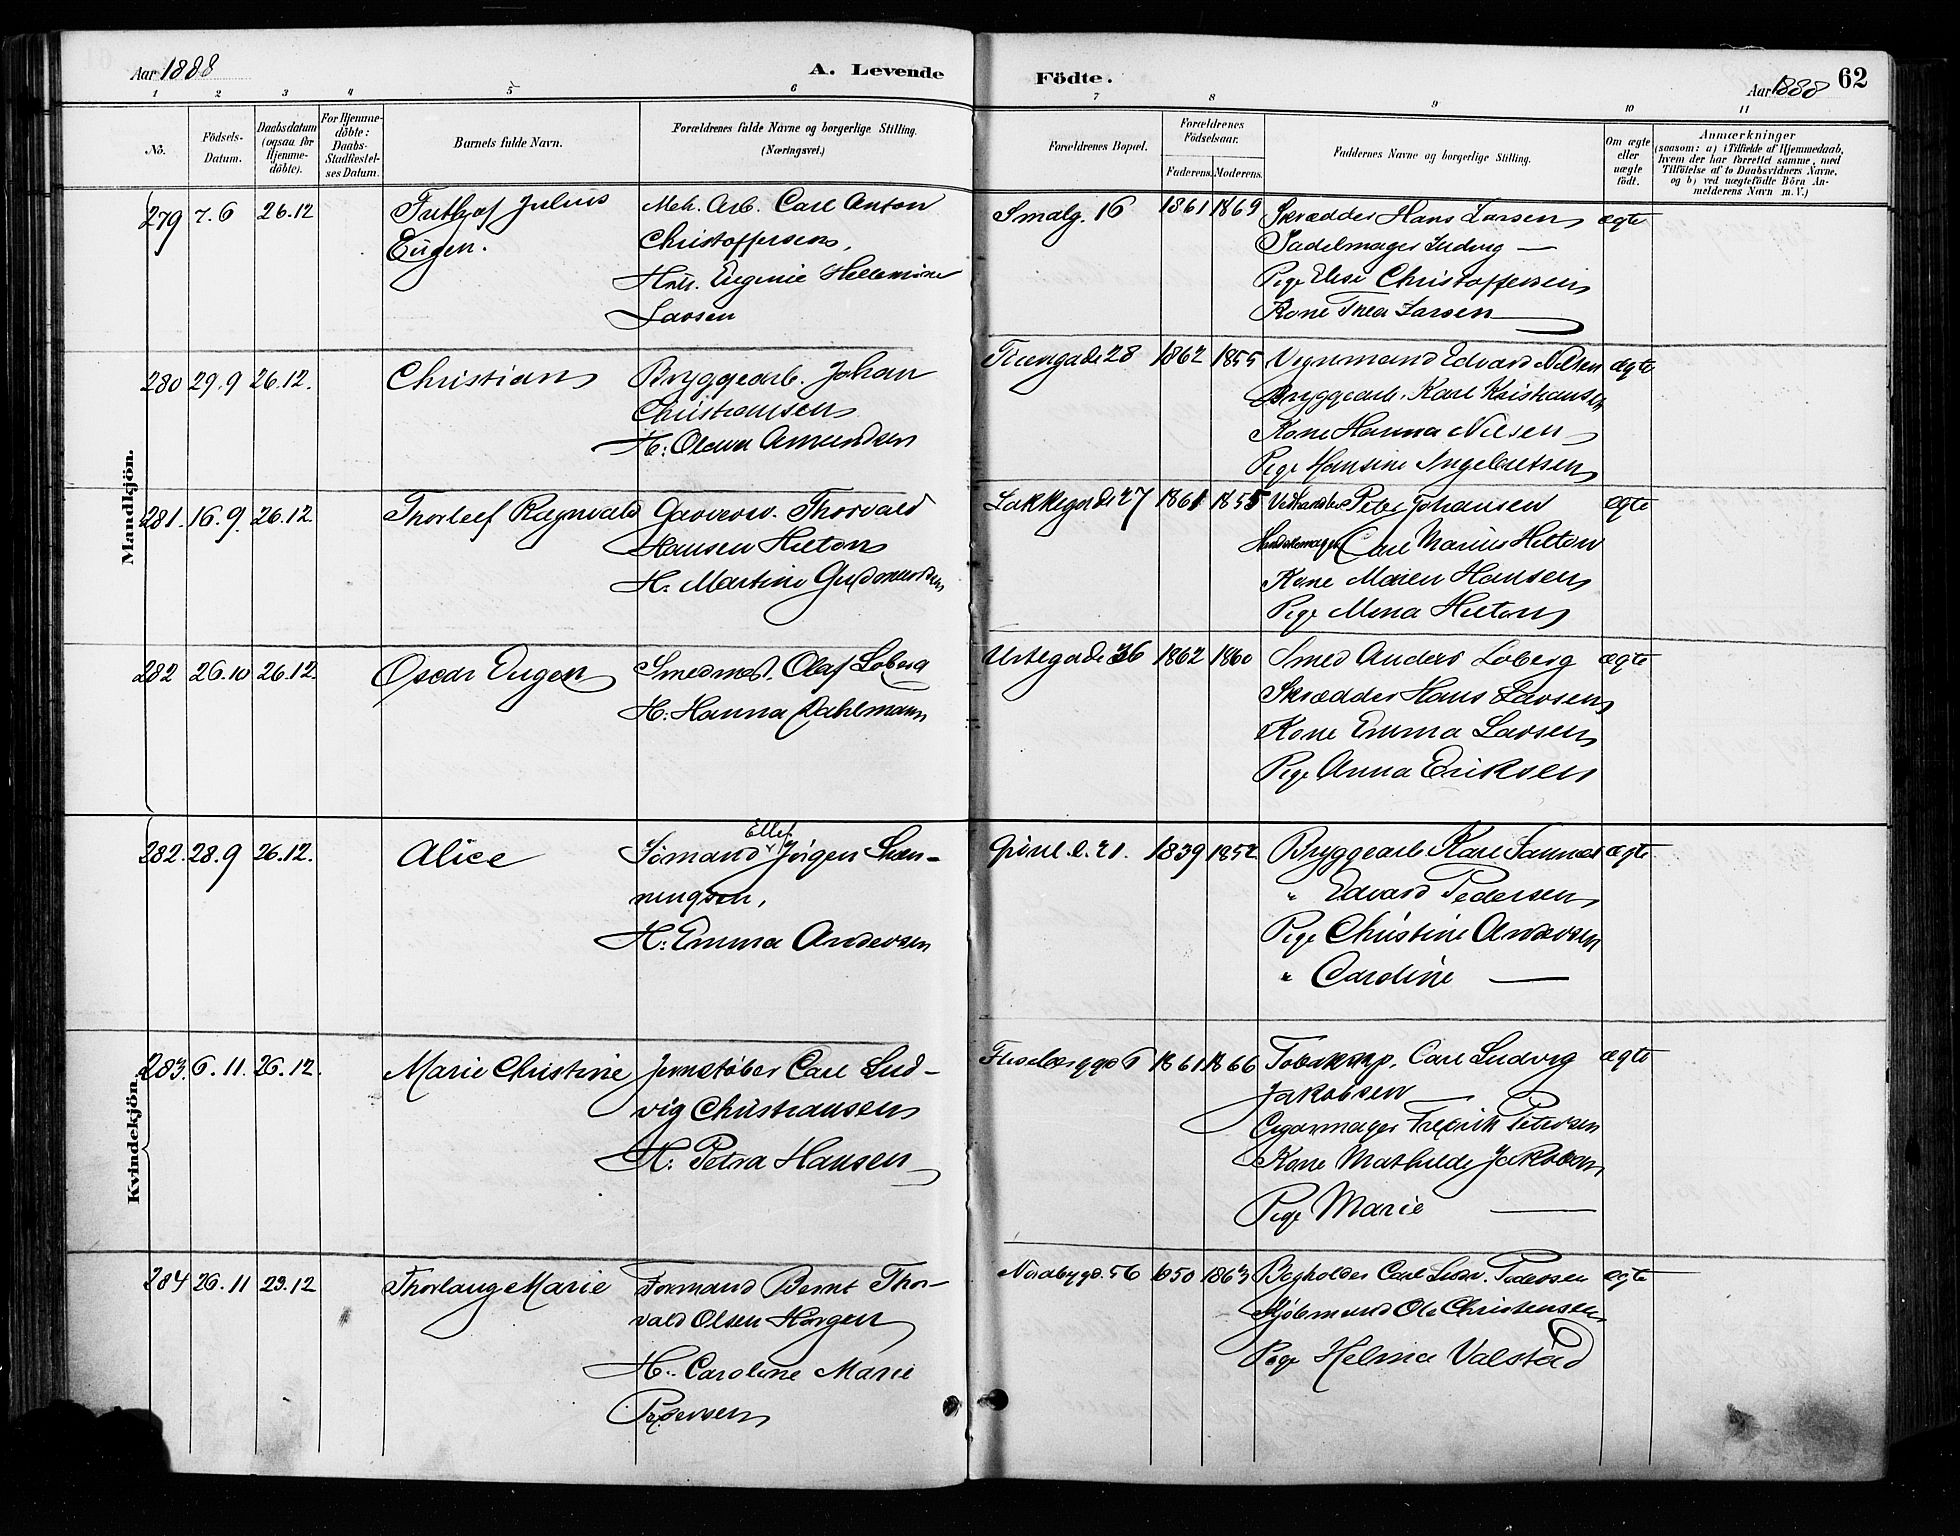 Aar 1888
A. Levende
Födte.
Aar 1888
62
1 2 3 4 5 6 7 8 9 10 11
No.
Födsels-
Datum.
Daabsdatum
(ogsaa for
Hjemme-
döbte).
For Hjemme-
döbte:
Daabs-
Stadfæstel-
ses Datum.
Barnets fulde Navn.
Forældrenes fulde Navne og borgerlige Stilling.
(Næringsvei.)
Forældrenes Bopæl.
Forældrenes
Födselsaar.
Faderens. Moderens.
Faddernes Navne og borgerlige Stilling.
Om ægte
eller
uægte
födt.
Anmærkninger
(saasom: a) i Tilfælde af Hjemmedaab,
hvem der har forrettet samme, med
Tilföielse af to Daabsvidners Navne,
og b) ved uægtefödte Börn An-
melderens Navn m. V.)
Mandkjön.
279 7.6 26.12
Frithjof Julius
Eugen.
Mek. Arb. Carl Anton
Christoffersen,
Hustr. Eugenie
Larsen
Smalg. 16 1861 1869
Skrædder Hans Larsen
Sadelmager Ludvig —
Pige Else Christoffersen
Kone Thea Larsen
ægte
280 29.9 26.12.
Christian
Bryggearb. Johan
Christiansen
H: Olava Amundsen
28 1862 1855
Vognmand Edvard Nilsen
Bryggearb. Karl Kristiansen
Kone Hanna Nilsen
Pige Hansine Ingebretsen
ægte
281. 16.9. 26.12.
Thorleif Ragnvald
Thorvald
Hansen Hilton
H: Martine Gudmundsen
Lakkegade 27 1861 1855
Vedhandler Peter Johansen
Carl Marius Hilton
Kone Maren Hansen
Pige Mina Hilton
ægte
282 26.10 26.12.
Oscar Eugen
Smedmest. Olaf Loberg
H: Hanna Dahlmann
Urtegade 36 1862 1860
Smed Anders Loberg
Skrædder Hans Larsen
Kone Emma Larsen
Pige Anna Eriksen
ægte
Kvindekjön.
282. 28.9 26.12.
Alice
Ellef
Sömand Jörgen
ningsen,
H: Emma Andersen
Grönl. l. 21. 1839 1852
Bryggearb Karl Sannes
" Edvard Pedersen
Pige Christine Andersen
" Caroline —
ægte
283. 6.11. 26.12.
Marie Christine
Jernstöber Carl Lud-
vig Christiansen
H: Petra Hansen
6 1861 1866
Carl Ludvig
Jakobsen
Cigarmager Fredrik Petersen
Kone Mathilde Jakobsen
Pige Marie —
ægte
284 26.11 29.12
Thorlaug Marie
Formand Bernt Thor-
vald Olsen Horgen
H: Caroline Marie
Pedersen
Nordbygd. 56 1850 1863
Carl Ludv. Pedersen
Ole Christensen
Pige Helma Valstad
ægte